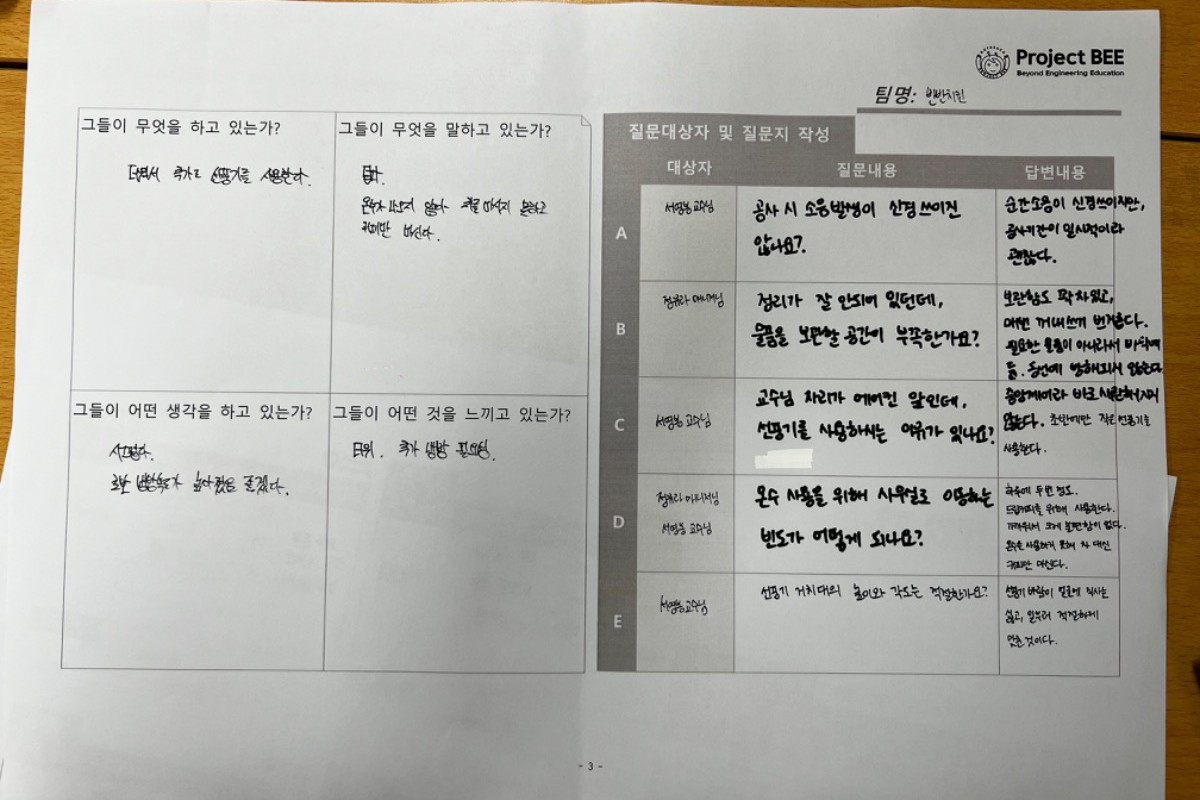 Project BEE
Beyond Engineering Education
팀명: 반반치킨
그들이 무엇을 하고 있는가?
추가로 선풍기를 사용한다.
그들이 무엇을 말하고 있는가?
덥다.
않다 마시지 못하고
커피만 마신다.
그들이 어떤 생각을 하고 있는가?
높아졌음 좋겠다.
그들이 어떤 것을 느끼고 있는가?
더위. 추가 냉방 필요성.
질문대상자 및 질문지 작성
대상자 질문내용 답변내용
A
서영봉 교수님
공사 시 소음발생이 신경쓰이진
않나요?
순간소음이 신경쓰이지만,
공사기간이 일시적이라
괜찮다.
B
매니저님
정리가 잘 안되어 있던데,
물품을 보관할 공간이 부족한가요?
보관함도 꽉차있고,
매번 꺼내쓰기 번거롭다.
필요한 물품이 아니라서 바닥에
둠. 동선에 방해되지 않는다.
C
서영봉 교수님
교수님 자리가 에어컨 앞인데,
선풍기를 사용하시는 이유가 있나요?
중앙제어라 바로 시원해지지
않는다. 초반에만 작은 선풍기를
사용한다.
D
매니저님
서영봉 교수님
온수 사용을 위해 사무실로 이동하는
빈도가 어떻게 되나요?
하루에 두번 정도.
드립커피를 위해 사용한다.
가까워서 크게 불편함이 없다.
온수를 사용하지 못해 차 대신
커피만 마신다.
E
서영봉 교수님
선풍기 거치대의 높이와 각도는 적절한가요?
선풍기 바람이 얼굴에 직사는
싫고, 일부러 적절하게
맞춘 것이다.
- 3 -